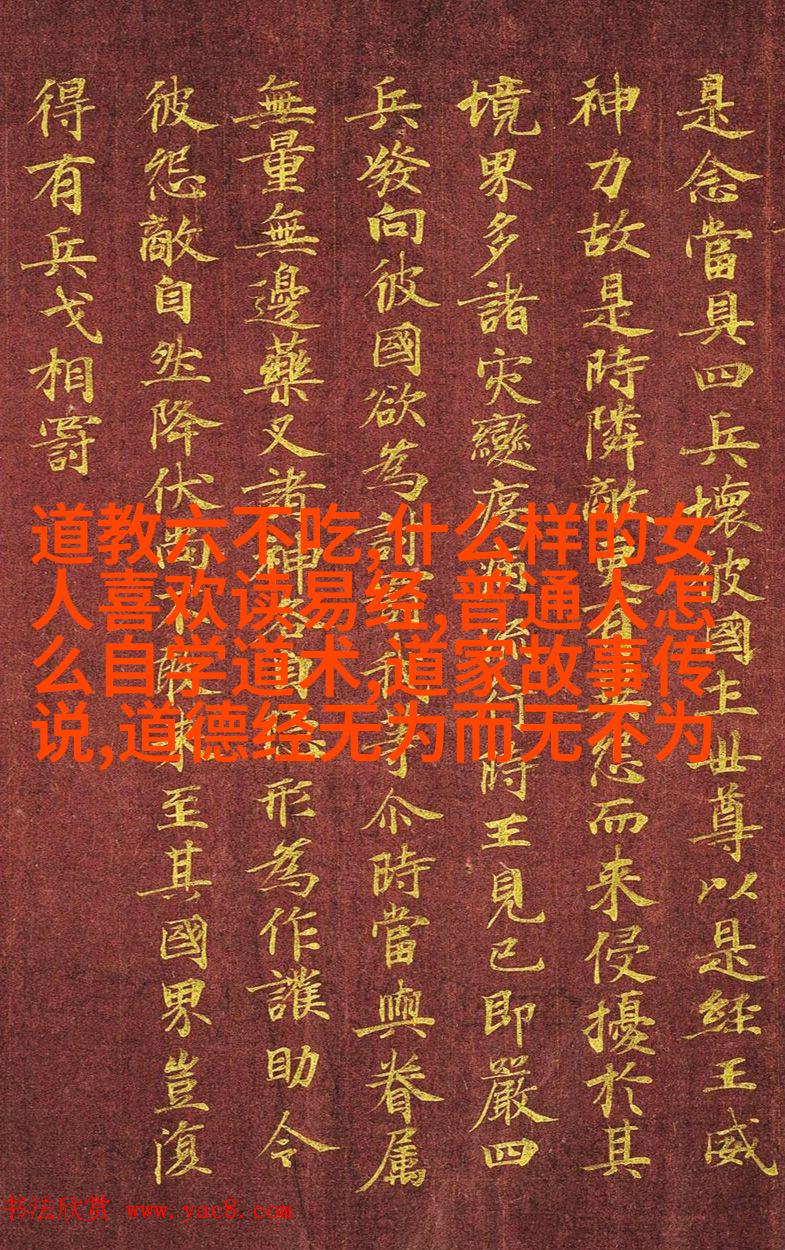 是念當具四兵壞彼國土世尊以是經王威
神力故是時隣敵更有異怨而来侵擾於其
境界多諸灾變疫病流行時王見已即嚴四
兵發向彼國欲為討罰我等尒時當與眷属
無量無邊藥叉諸神各自隱形為作護助令
彼怨敵自然降伏尚不敢来至其國界豈復
得有兵戈相罸
道教六不吃,什么样的女
人喜欢读易经,普通人怎
么自学道术,道家故事传
说,道德经无为而无不为
书法欣赏 www.yac8.com